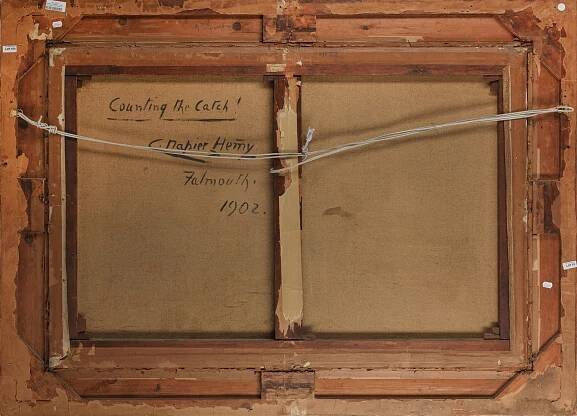 Counting the Catch!
C. Napier Hemy
Falmouth.
1902.